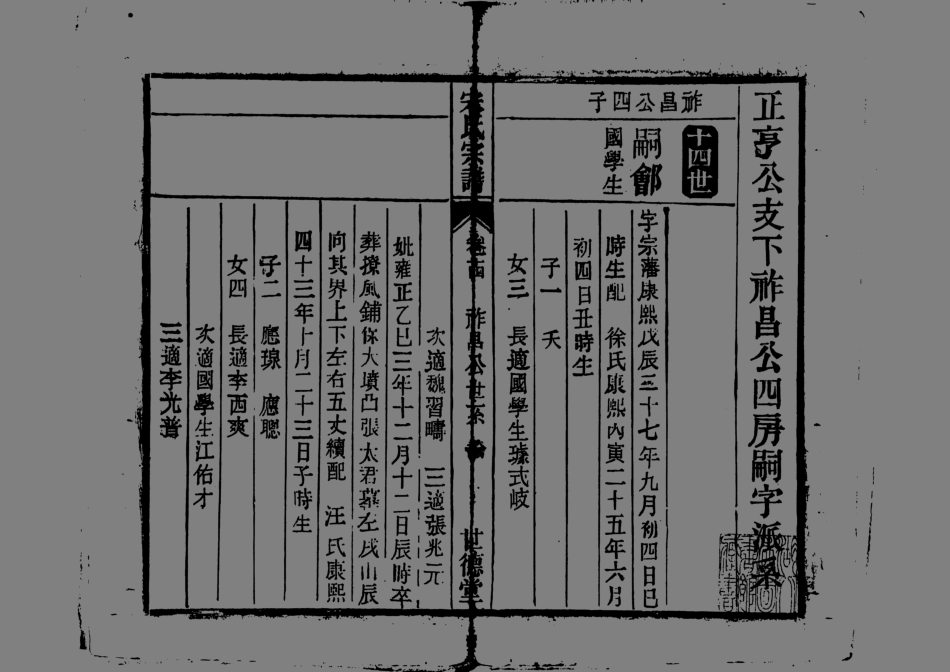 正亨公支下祚昌公四房嗣字派系
祚昌公四子
十四世
嗣鄫
國學生
字宗藩康熙戊辰三十七年九月初四日巳
時生配 徐氏康熙丙寅二十五年六月
初四日丑時生
子一 夭
女三 長適國學生璩式岐
宋氏宗譜 卷十四 祚昌公世系 世德堂
次適魏習疇 三適張兆元
妣雍正乙巳三年十二月十二日辰時卒
葬撩風鋪你大墳凸張太君墓左戌山辰
向其界上下左右五丈續配 汪氏康熙
四十三年十月二十三日子時生
子二 應瑔 應聰
女四 長適李西爽
次適國學生江佑才
三適李光普